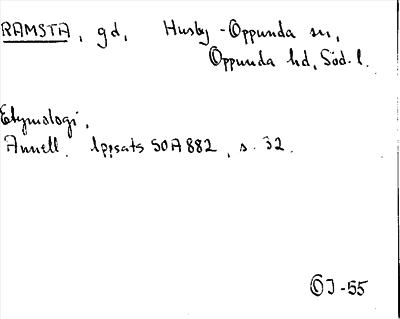 RAMSTA, gd, Husby-Oppunda sn,
Oppunda hd, Söd. l.
Etymologi,
Annell. Uppsats SOA 882, s. 32.
ÖJ-55